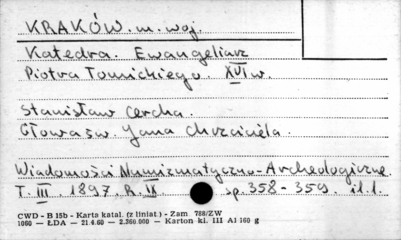 KRAKÓW. m. woj.
Katedra. Ewangeliarz
Piotra Tomickiego. XVI w.
Stanisław Cercha.
Głowa św. Jana Chrzciciela.
Wiadomości Numizmatyczno-Archeologiczne.
T. III. 1897. R. IX sp. 358-359. il. 1.
CWD - B 15b - Karta katal. (z liniat.) - Zam. 788/ZW
1000 — ŁDA — 21.4.60 — 2.360.000 — Karton kl. III A1 160 g